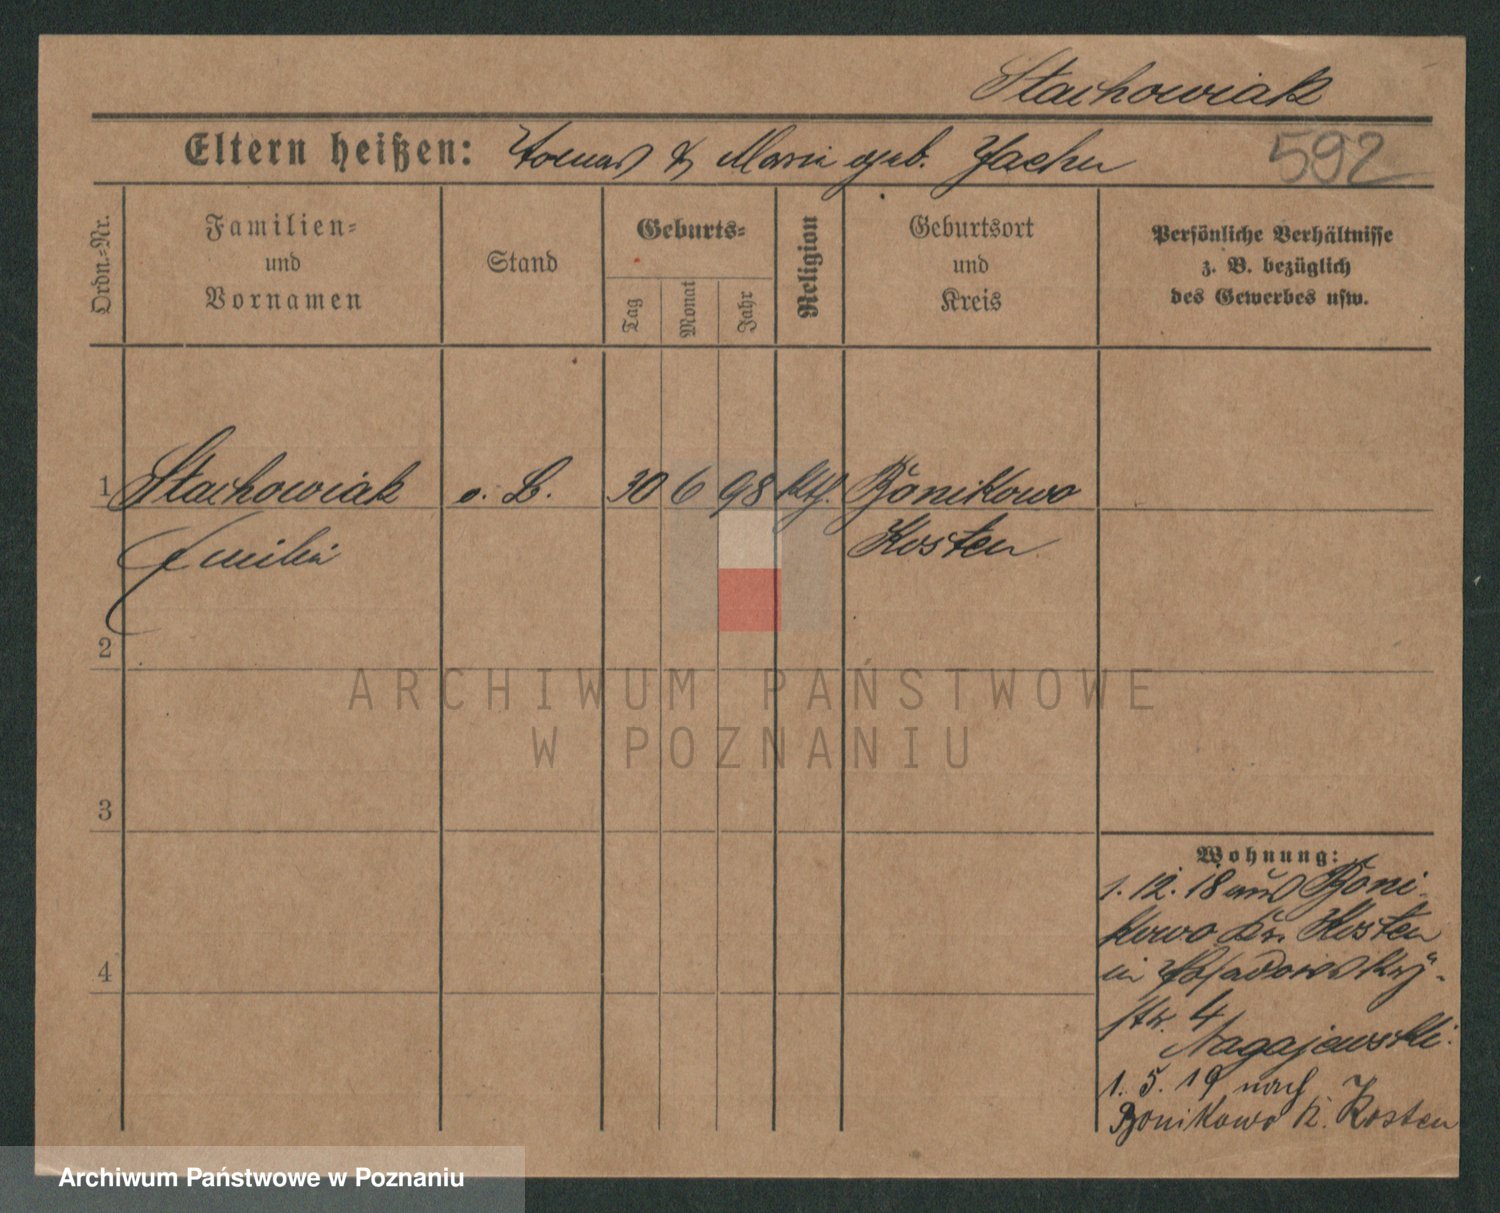 Stachowiak
Eltern heißen: Tomas & Marie geb. Jachn 592
Ordn.-Nr.
Familien-
und
Vornamen
Stand
Geburts-
Tag
Monat
Jahr
Religion
Geburtsort
und
Kreis
Persönliche Verhältnisse
z. B. bezüglich
des Gewerbes usw.
1 Stachowiak o. B. 30 6 98 kth. Bonikowo
Emilie Kosten
2
3
4
Wohnung:
1. 12. 18 aus Boni-
kowo Kr. Kosten
in
str. 4
Nagajewski.
1. 5. 19 nach
Bonikowo K. Kosten
ARCHIWUM PAŃSTWOWE
W POZNANIU
Archiwum Państwowe w Poznaniu